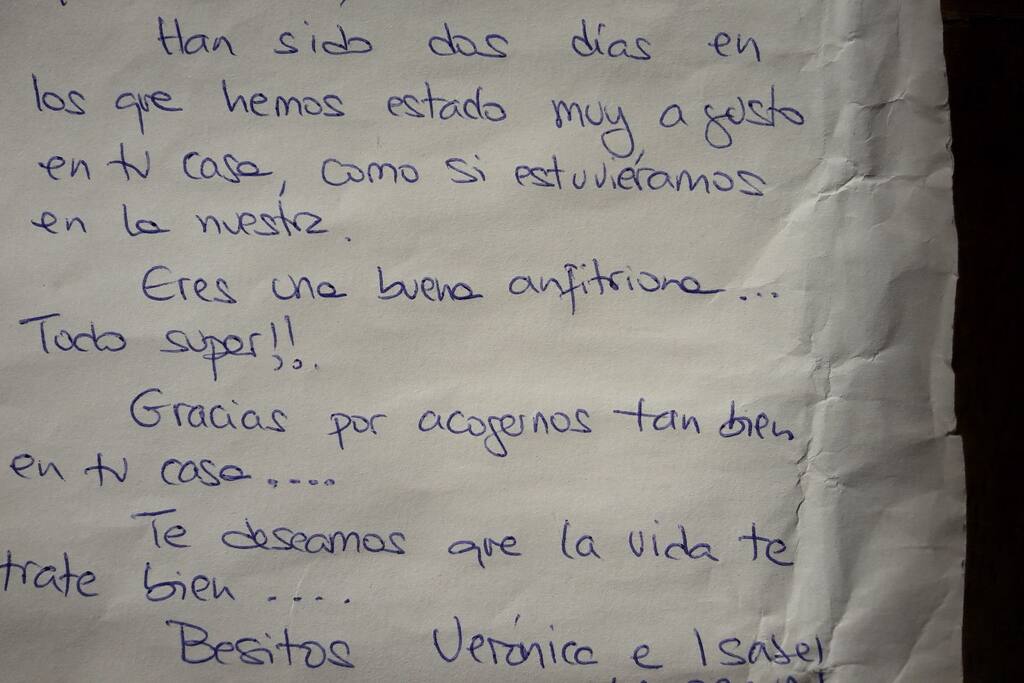 Han sido dos días en
los que hemos estado muy a gusto
en tu casa, como si estuviéramos
en la nuestra.
Eres una buena anfitriona...
Todo super!!.
Gracias por acogernos tan bien
en tu casa.....
Te deseamos que la vida te
trate bien ....
Besitos Verónica e Isabel